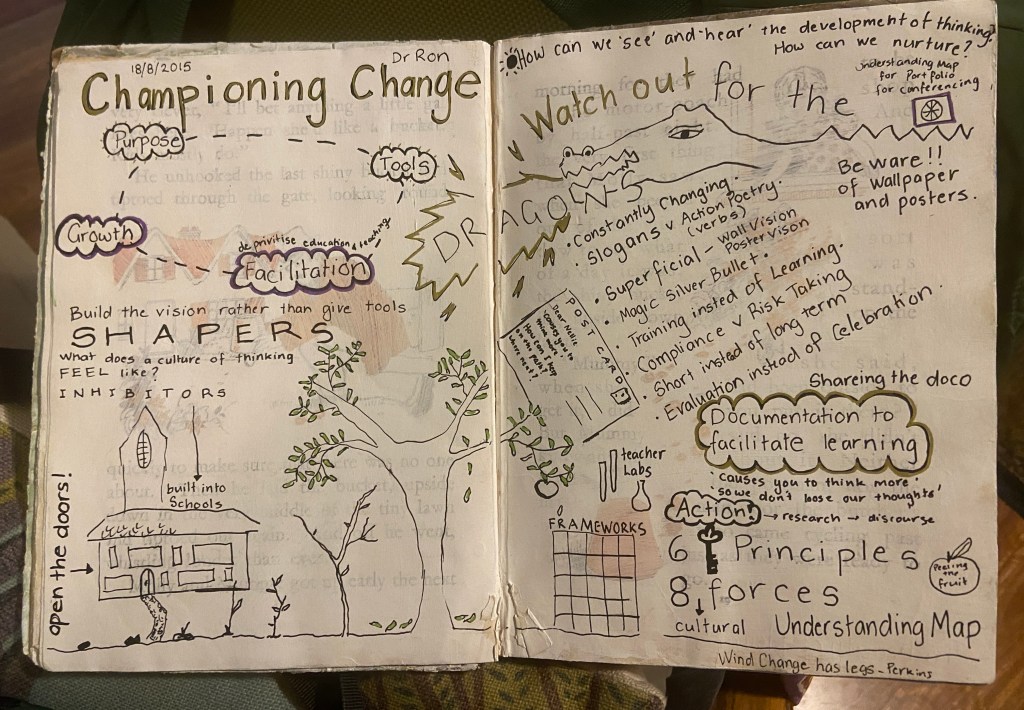 18/8/2015
Dr Ron
Championing Change
Purpose
Tools
Growth
de privitise education & teaching
Facilitation
Build the vision rather than give tools
SHAPERS
What does a culture of thinking
FEEL like?
INHIBITORS
built into
Schools
open the doors!
How can we 'see' and 'hear' the development of thinking?
How can we nurture?
Understanding Map
for Portfolio
for conferencing
Watch out for the
DRAGONS
Be ware!!
of wallpaper
and posters.
• Constantly Changing.
• Slogans v Action Poetry.
(verbs)
• Superficial - Wall Vision
Poster Vision
• Magic Silver Bullet.
• Training insted of Learning.
• Compliance v Risk Taking
• Short instead of long term
• Evaluation instead of Celebration.
POST CARD
Dear Nellie
'causes you to
think more'
How can I stay
on this path?
where next?
Shareing the doco
Documentation to
facilitate learning
'causes you to think more'
'so we don't loose our thoughts'
teacher
Labs
Action! → research → discourse
FRAMEWORKS
6 Principles
8 forces
cultural
Peeling
the
fruit
Understanding Map
Wind Change has legs - Perkins